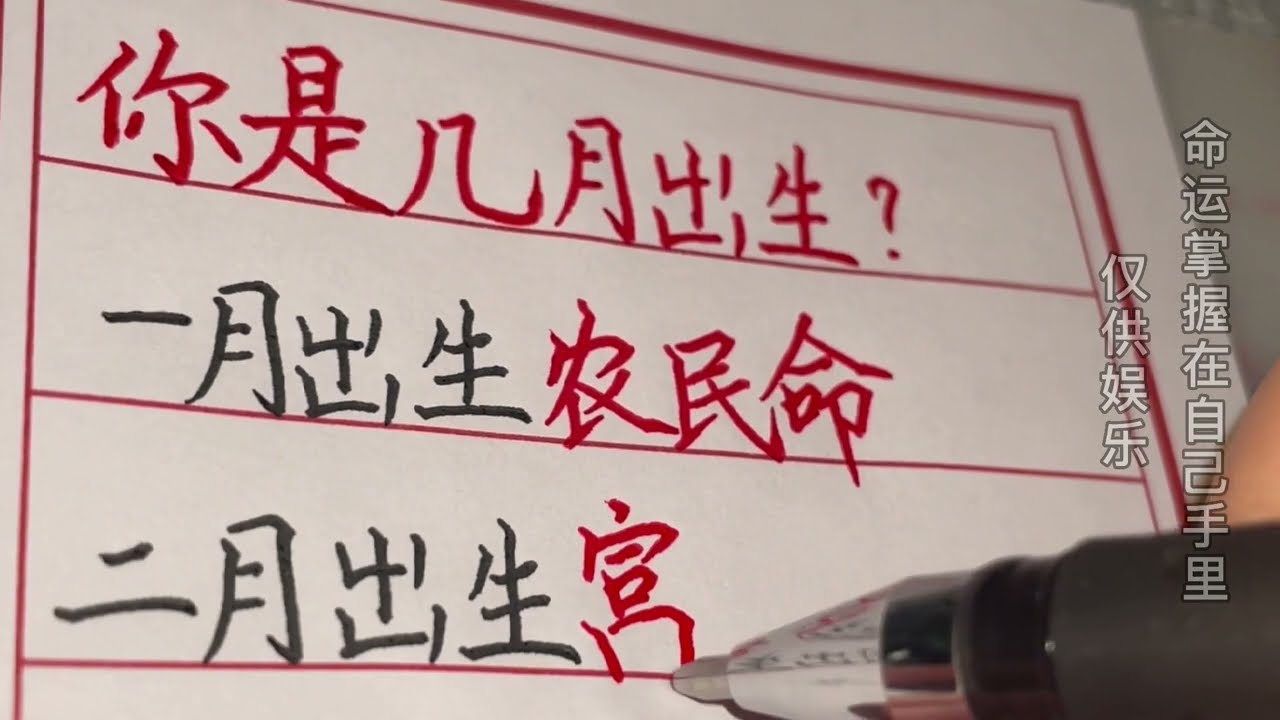 你是几月出生?
一月出生农民命
二月出生
命运掌握在自己手里
仅供娱乐